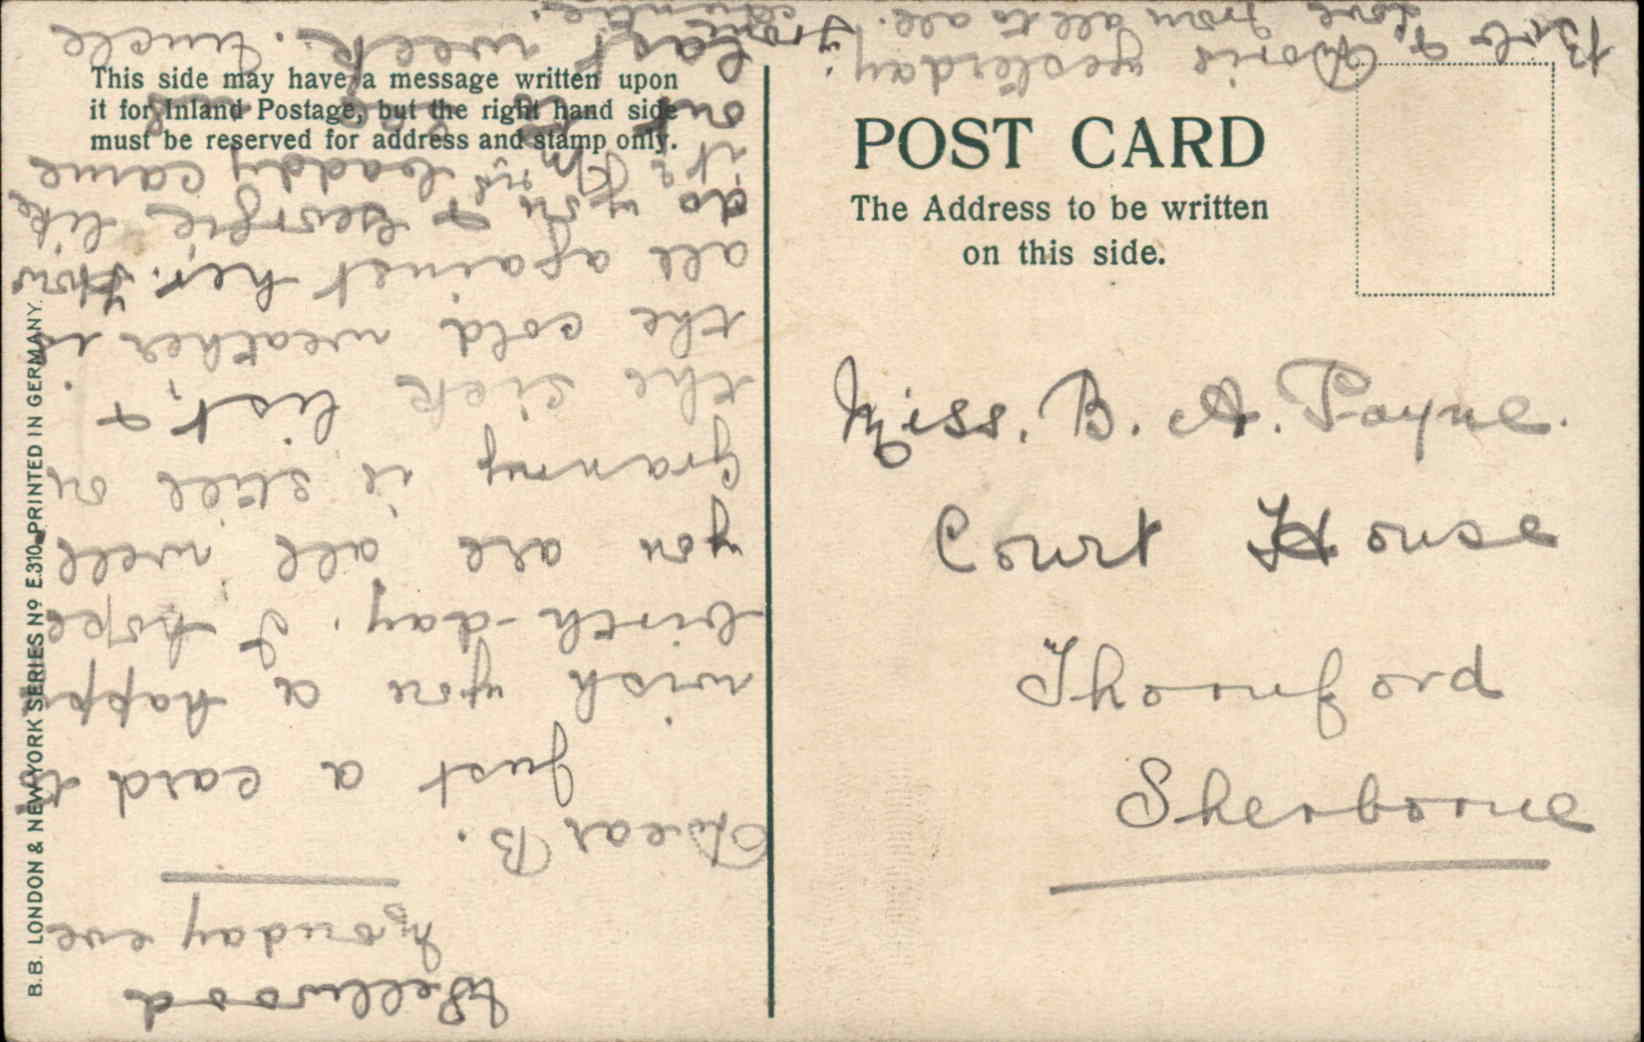 This side may have a message written upon
it for Inland Postage, but the right hand side
must be reserved for address and stamp only.
POST CARD
The Address to be written
on this side.
Miss. B. A. Payne.
Court House
Thornford
Sherborne
B.B. LONDON & NEW YORK SERIES No E.310. PRINTED IN GERMANY.
Wellwood
Monday eve
Dear B.
Just a card to
wish you a happy
birth-day. I hope
you are all well
Granny is still on
the sick list, &
the cold weather is
all against her. How
do you & Georgie like
it? Daddy came
on to see us
last week. Uncle
Bob & Doris yesterday.
Love from all to all. From
Auntie.